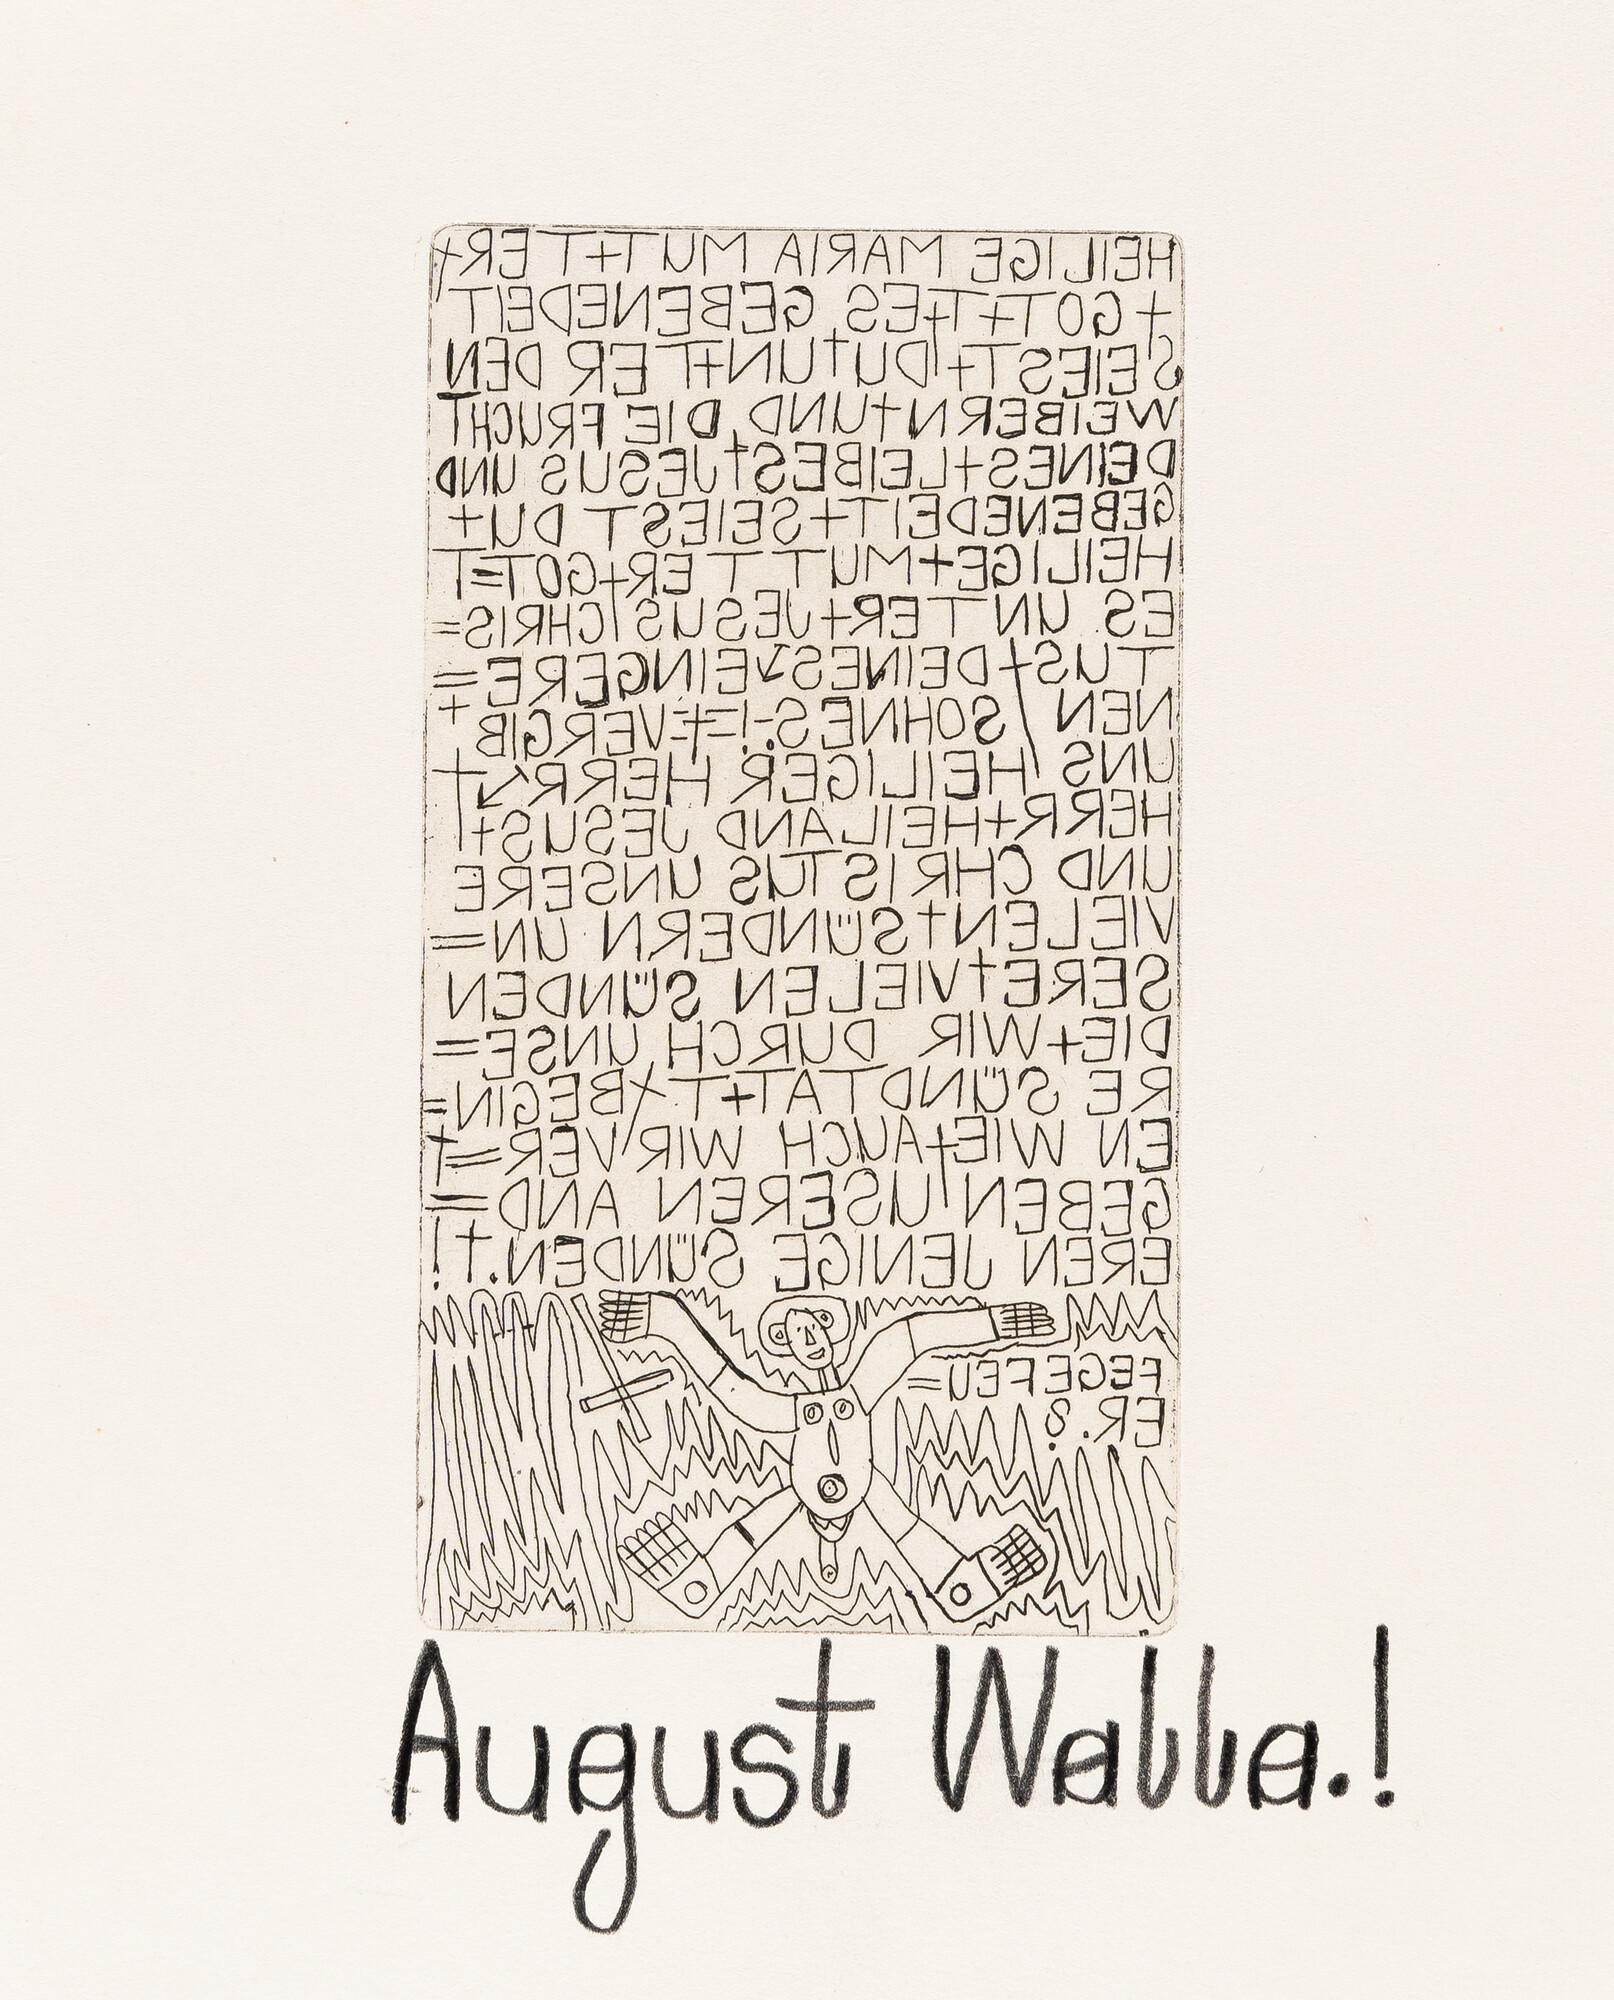 HEILIGE MARIA MUT+TER+
+GOT+T+ES GEBENEDEIT
SEIEST+DU+UN+TER DEN
WEIBERN+UND DIE FRUCHT
DEINES+LEIBES+JESUS UND
GEBENEDEIT+SEIEST DU+
HEILIGE+MUTTER+GOT=T
ES UNTER+JESUS/CHRIS=
TUS+DEINES EINGERE=
NEN / SOHNES-!=+=VERGIB +
UNS HEILIGER HERR↘+
HERR+HEILAND JESUS+
UND CHRISTUS UNSERE
VIELEN+SÜNDERN UN=
SERE+VIELEN SÜNDEN
DIE+WIR DURCH UNSE=
RE SÜNDTAT+T+BEGIN=
EN WIE+AUCH WIR VER=+
GEBEN USEREN AND=
EREN JENIGE SÜNDEN.+!
FEGEFEU=
ER.?
August Walla.!